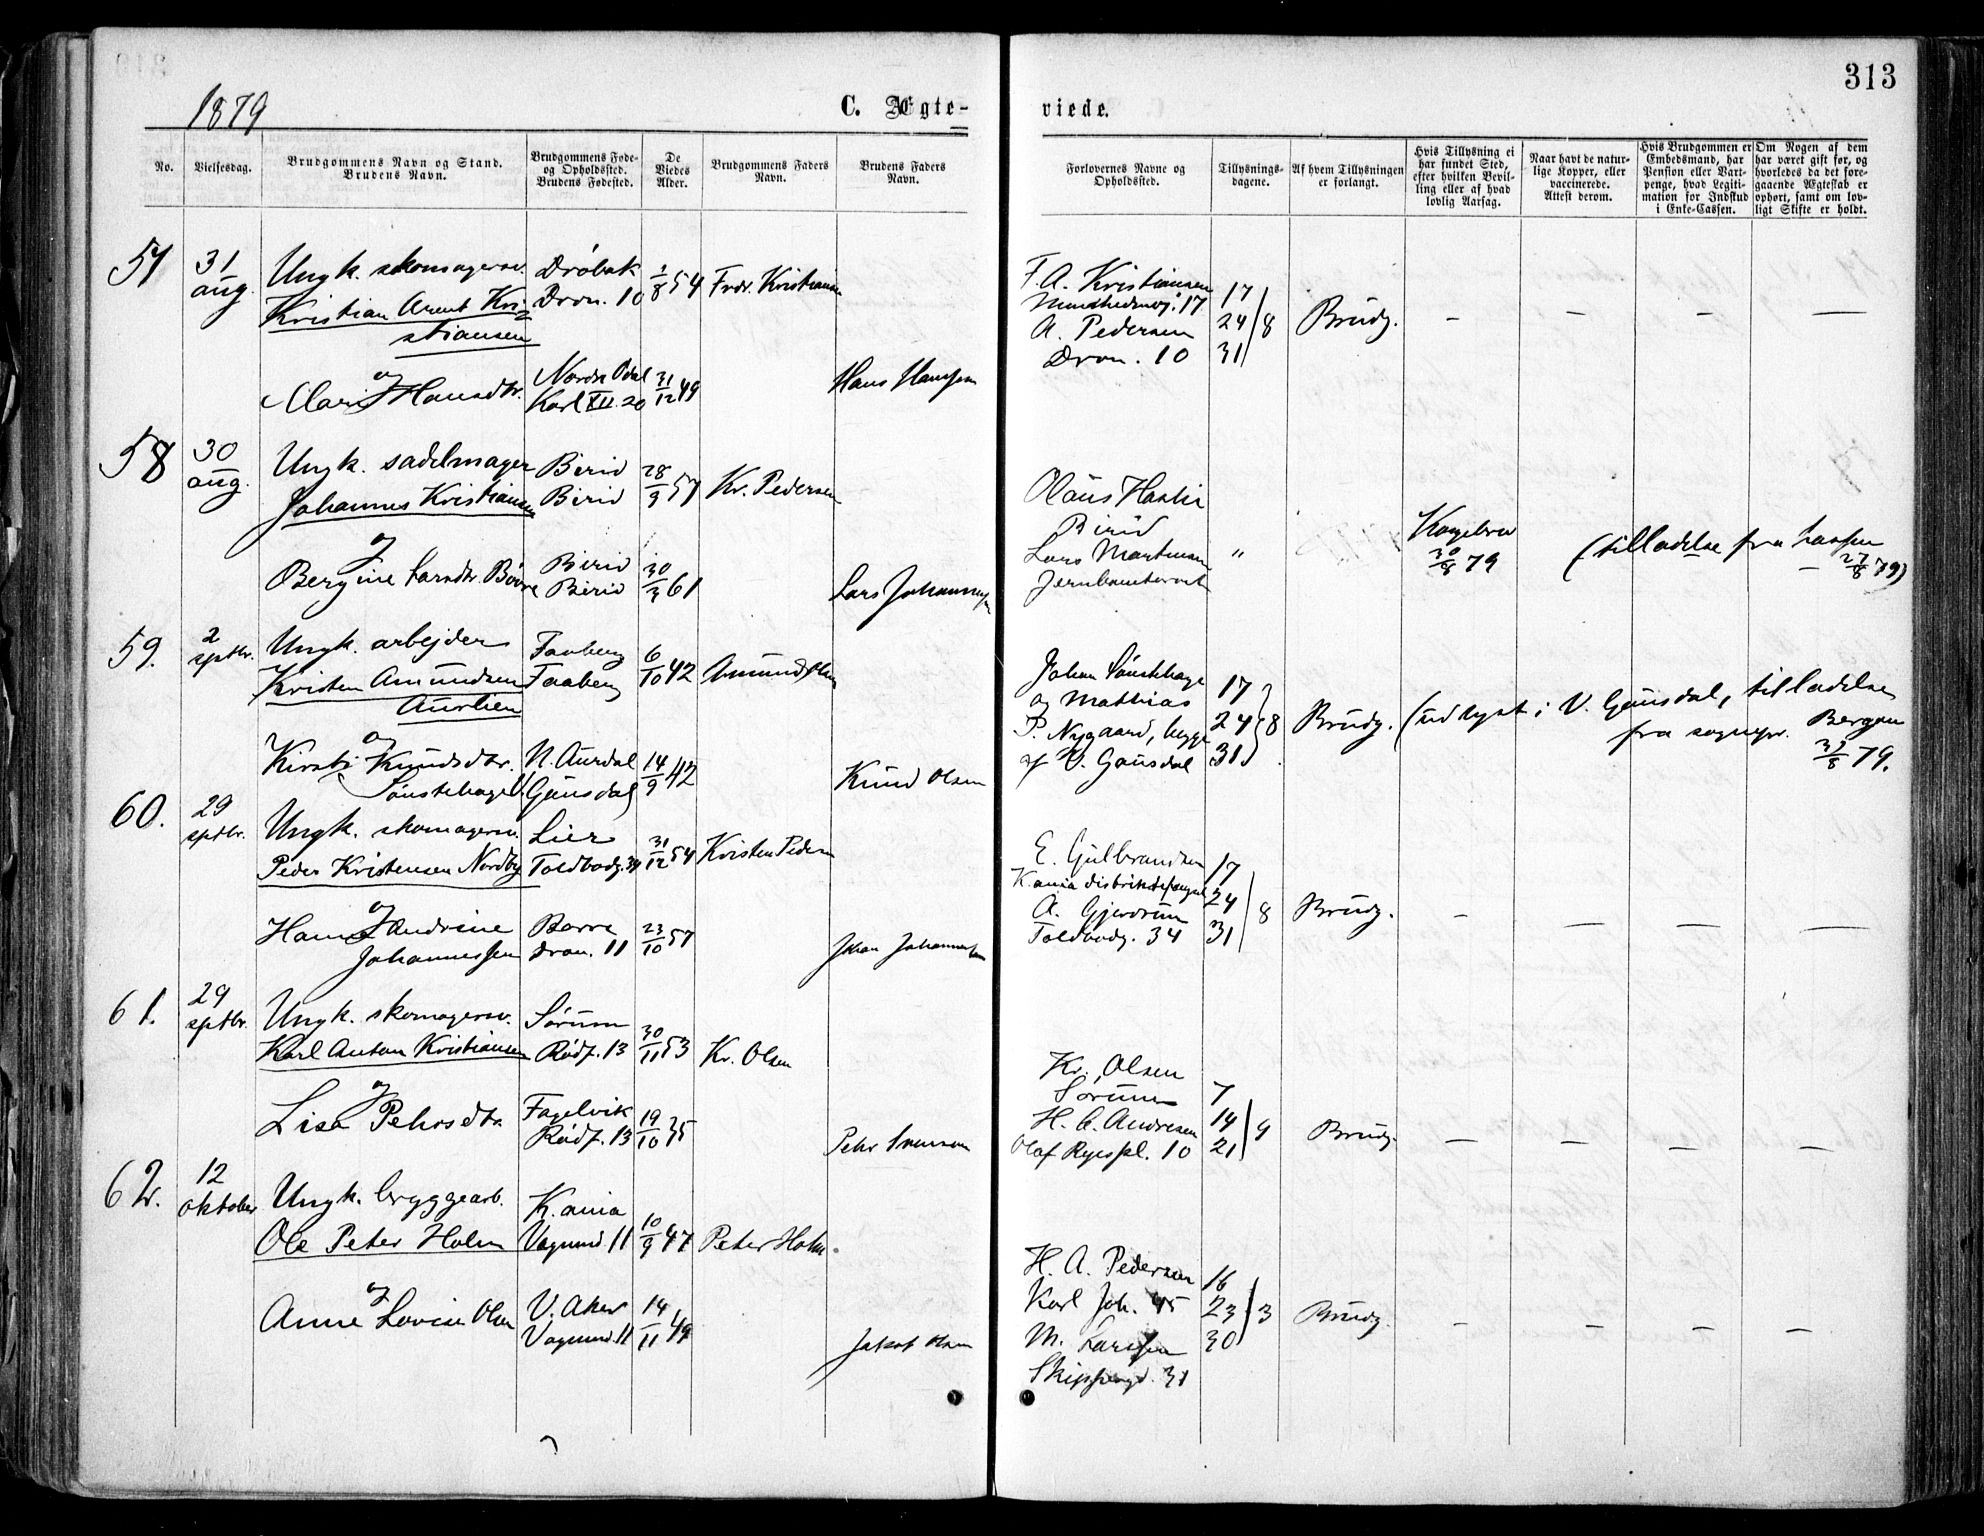 313
1879
C. Ægte-
viede.
No.
Vielsesdag.
Brudgommens Navn og Stand.
Brudens Navn.
Brudgommens Føde-
og Opholdssted.
Brudens Fødested.
De
Viedes
Alder.
Brudgommens Faders
Navn.
Brudens Faders
Navn.
Forlovernes Navne og
Opholdssted.
Tillysnings-
dagene.
Af hvem Tillysningen
er forlangt.
Hvis Tillysning ei
har fundet Sted,
efter hvilken Bevil-
ling eller af hvad
lovlig Aarsag.
Naar havt de natur-
lige Kopper, eller
vaccinerede.
Attest derom.
Hvis Brudgommen er
Embedsmand, har
Pension eller Vart-
penge, hvad Legiti-
mation for Indskud
i Enke-Cassen.
Om Nogen af dem
har været gift før, og
hvorledes da det fore-
gaaende Ægteskab er
ophørt, samt om lov-
ligt Skifte er holdt.
57
31
aug.
Ungk. skomagersv.
Kristian Arent Kri-
stiansen
og
Mari Hansdtr.
Drøbak
Dron. 10
Nordre Odal
Karl XII. 20
1/8 54
31/12 49
Fredr. Kristiansen
Hans Hansen
F. A. Kristiansen
17
A. Pedersen
Dron. 10
17
24
31
/8
Brudg.
—
—
—
—
58
30
aug.
Ungk. sadelmager
Johannes Kristiansen
og
Bergine Larsdtr.
Birid
Birid
Birid
Birid
28/9 57
30/3 61
Kr. Pedersen
Lars Johannessen
Olaus
Birid
Lars Martinsen
Jernbanetorvet
"
Kongebrev
30/8 79
(tilladelse fra
27/8 79)
59.
2
sptbr.
Ungk. arbejder
Kristen Amundsen
Aurlien
og
Kirsti Knudsdtr.
Sønstehagen
Faaberg
Faaberg
N. Aurdal
V. Gausdal
6/10 42
14/9 42
Amund Olsen
Knud Olsen
Johan Sønstehage
og Mathias
P. Nygaard, begge
af V. Gausdal
17
24
31
}8
Brudg.
(udlyst i V. Gausdal, tilladelse
fra sognepr. Bergan
31/8 79.
60.
29
sptbr.
Ungk. skomagersv.
Peder Kristensen Nordby
og
Johannessen
Lier
Toldbodg. 34
Borre
Dron. 11
31/12 54
23/10 57
Kristen Pedersen
Johan Johannessen
E. Gulbrandsen
K.ania distriktsfængsel
A. Gjerdrum
Toldbodg. 34
17
24
31
/8
Brudg.
—
—
—
—
61.
29
sptbr.
Ungk. skomagersv.
Karl Anton Kristiansen
og
Lisa Pehrsdtr.
Sørum
Rødf. 13
Fagelvik
Rødf. 13
30/11 53
19/10 35
Kr. Olsen
Peter Svenson
Kr. Olsen
Sørum
H. C. Andresen
Olaf Ryespl. 10
7
14
21
/9
Brudg.
—
—
—
—
62.
12
oktober
Ungk. bryggearb.
Ole Peter Holm
og
Anne Lovise Olsen
K.ania
Vognmd. 11
V. Aker
Vognmd. 11
10/9 47
14/11 49
Peter Holm.
Jakob Olsen
H. A. Pedersen
Karl Joh. 45
M. Larssen
Skippergd. 31
16
23
30
}3
Brudg.
—
—
—
—